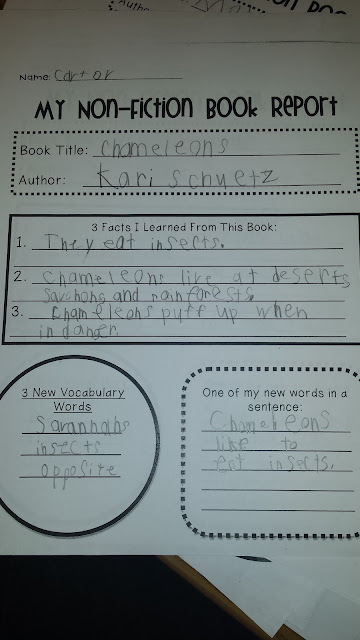 Name: Carter
My Non-Fiction Book Report
Book Title: chameleons
Author: Kari schuetz
3 Facts I Learned From This Book:
1. They eat insects.
2. chameleons live at deserts
and rainforests.
3. chameleons puff up when
in danger.
3 New Vocabulary
Words
insects
opposite
One of my new words in a
sentence:
Chameleons
like to
eat insects.